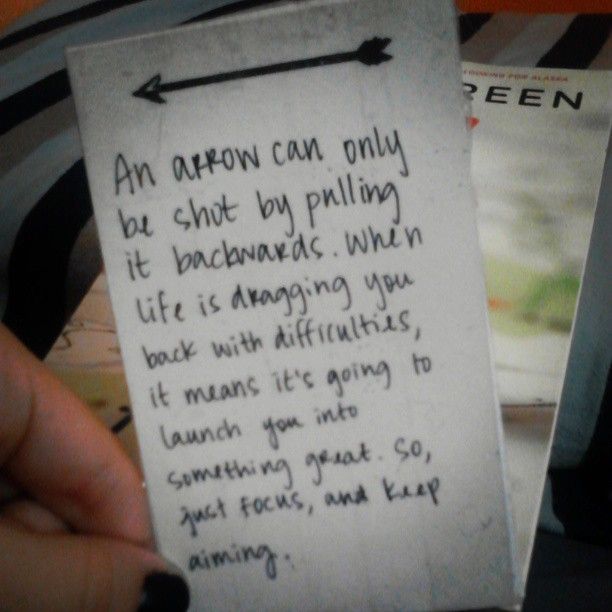 An arrow can only
be shot by pulling
it backwards. When
life is dragging you
back with difficulties,
it means it's going to
launch you into
something great. So,
just focus, and keep
aiming.
LOOKING FOR ALASKA
REEN